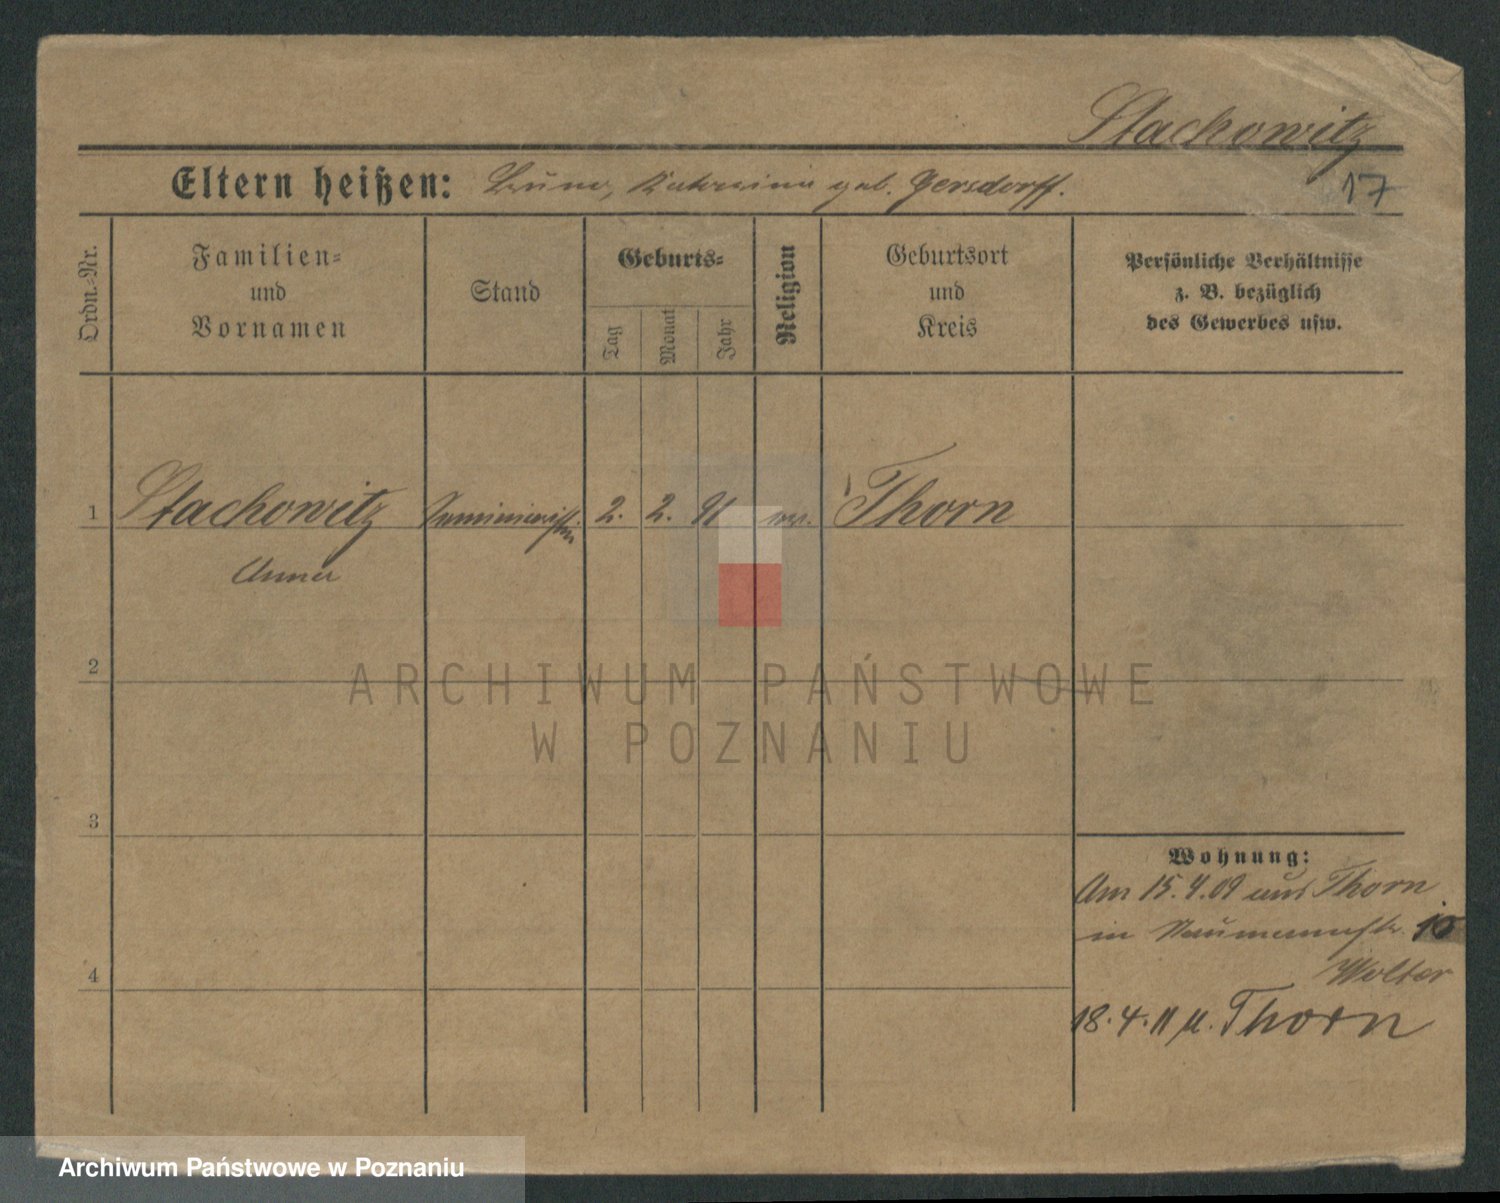 Stachowitz
Eltern heißen: Bruno, Katharina geb. Gersdorff.
17
Ordn.-Nr.
Familien-
und
Vornamen
Stand
Geburts-
Tag
Monat
Jahr
Religion
Geburtsort
und
Kreis
Persönliche Verhältnisse
z. B. bezüglich
des Gewerbes usw.
1
Stachowitz
2. 2. 91
Thorn
Anna
2
ARCHIWUM PAŃSTWOWE
W POZNANIU
3
Wohnung:
Am 15.4.09 aus Thorn
in Naumannstr. 10
Wolter
4
18.4.11 n. Thorn
Archiwum Państwowe w Poznaniu